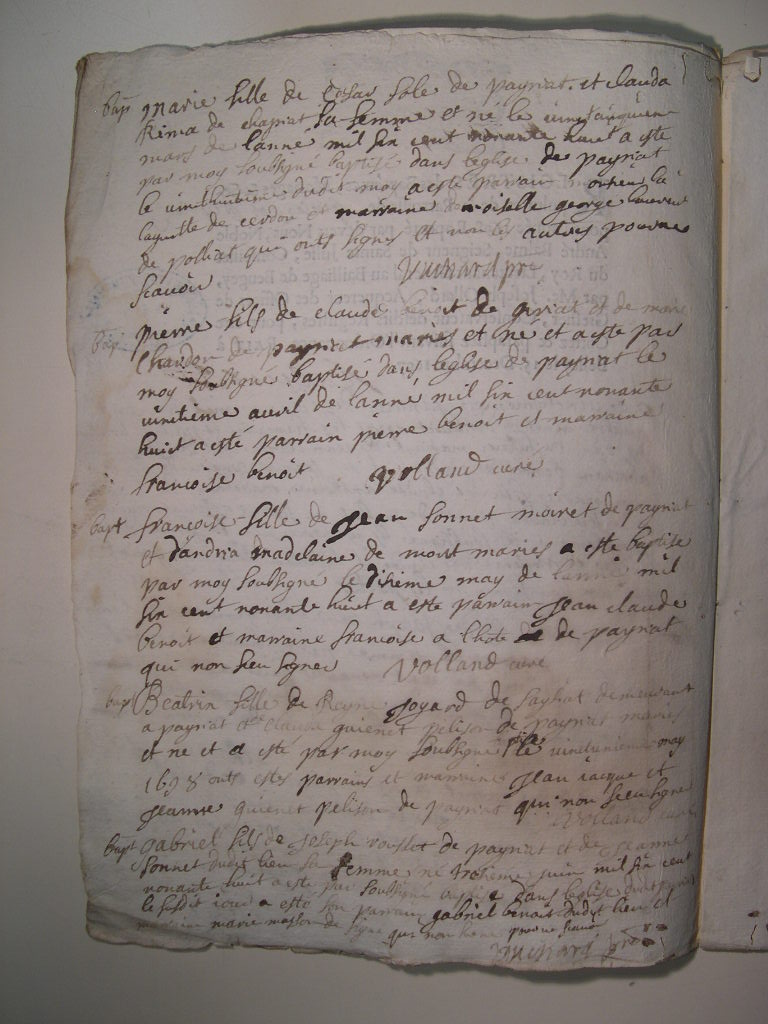 bapt marie fille de Cesar sole de paynat et clauda
Rima de chapiat sa femme et né le
mars de lanné mil sin cent nonante huit a este
par moy soubsigné baptisé dans leglise de paynat
le dudit moy a este parrain
laquille de cerdon et marraine george
de polliat qui onts signes et non les autres pour ne
scavoir Vuchard pre
bapt pierre fils de claude benoit de et de marie
Chardon de paynat maries et né et a este par
moy soubsigné baptisé dans leglise de paynat le
vintieme avril de lanné mil sin cent nonante
huict a esté parrain pierre benoit et marraine
francoise benoit Volland curé
bapt francoise fille de Jean sonnet moiret de paynat
et dandria madelaine de mort maries a este baptise
par moy soubsigne le disieme may de lanné mil
sin cent nonante huict a este parrain Jean claude
benoit et marraine francoise a lhote de paynat
qui non sceu signer Volland curé
bapt Beatrix fille de Reyne Joyard de demeurant
a paynat et clauda quienet pelison de paynat maries
et ne et a este par moy soubsigné le may
1698 onts estes parrains et marraines Jean iacque et
Jeanne quienet pelison de paynat qui non sceu signe
Volland curé
bapt gabriel fils de Joseph de paynat et de Jeanne
sonnet dudit lieu sa femme ne troisieme juin mil sin cent
nonante huit a este par soubsigné baptisé dans leglise dudit paynat
le susdit iour a esté son parrain gabriel benoit dudit lieu et
marraine marie qui non signe pour ne scavoir
Vuchard pre